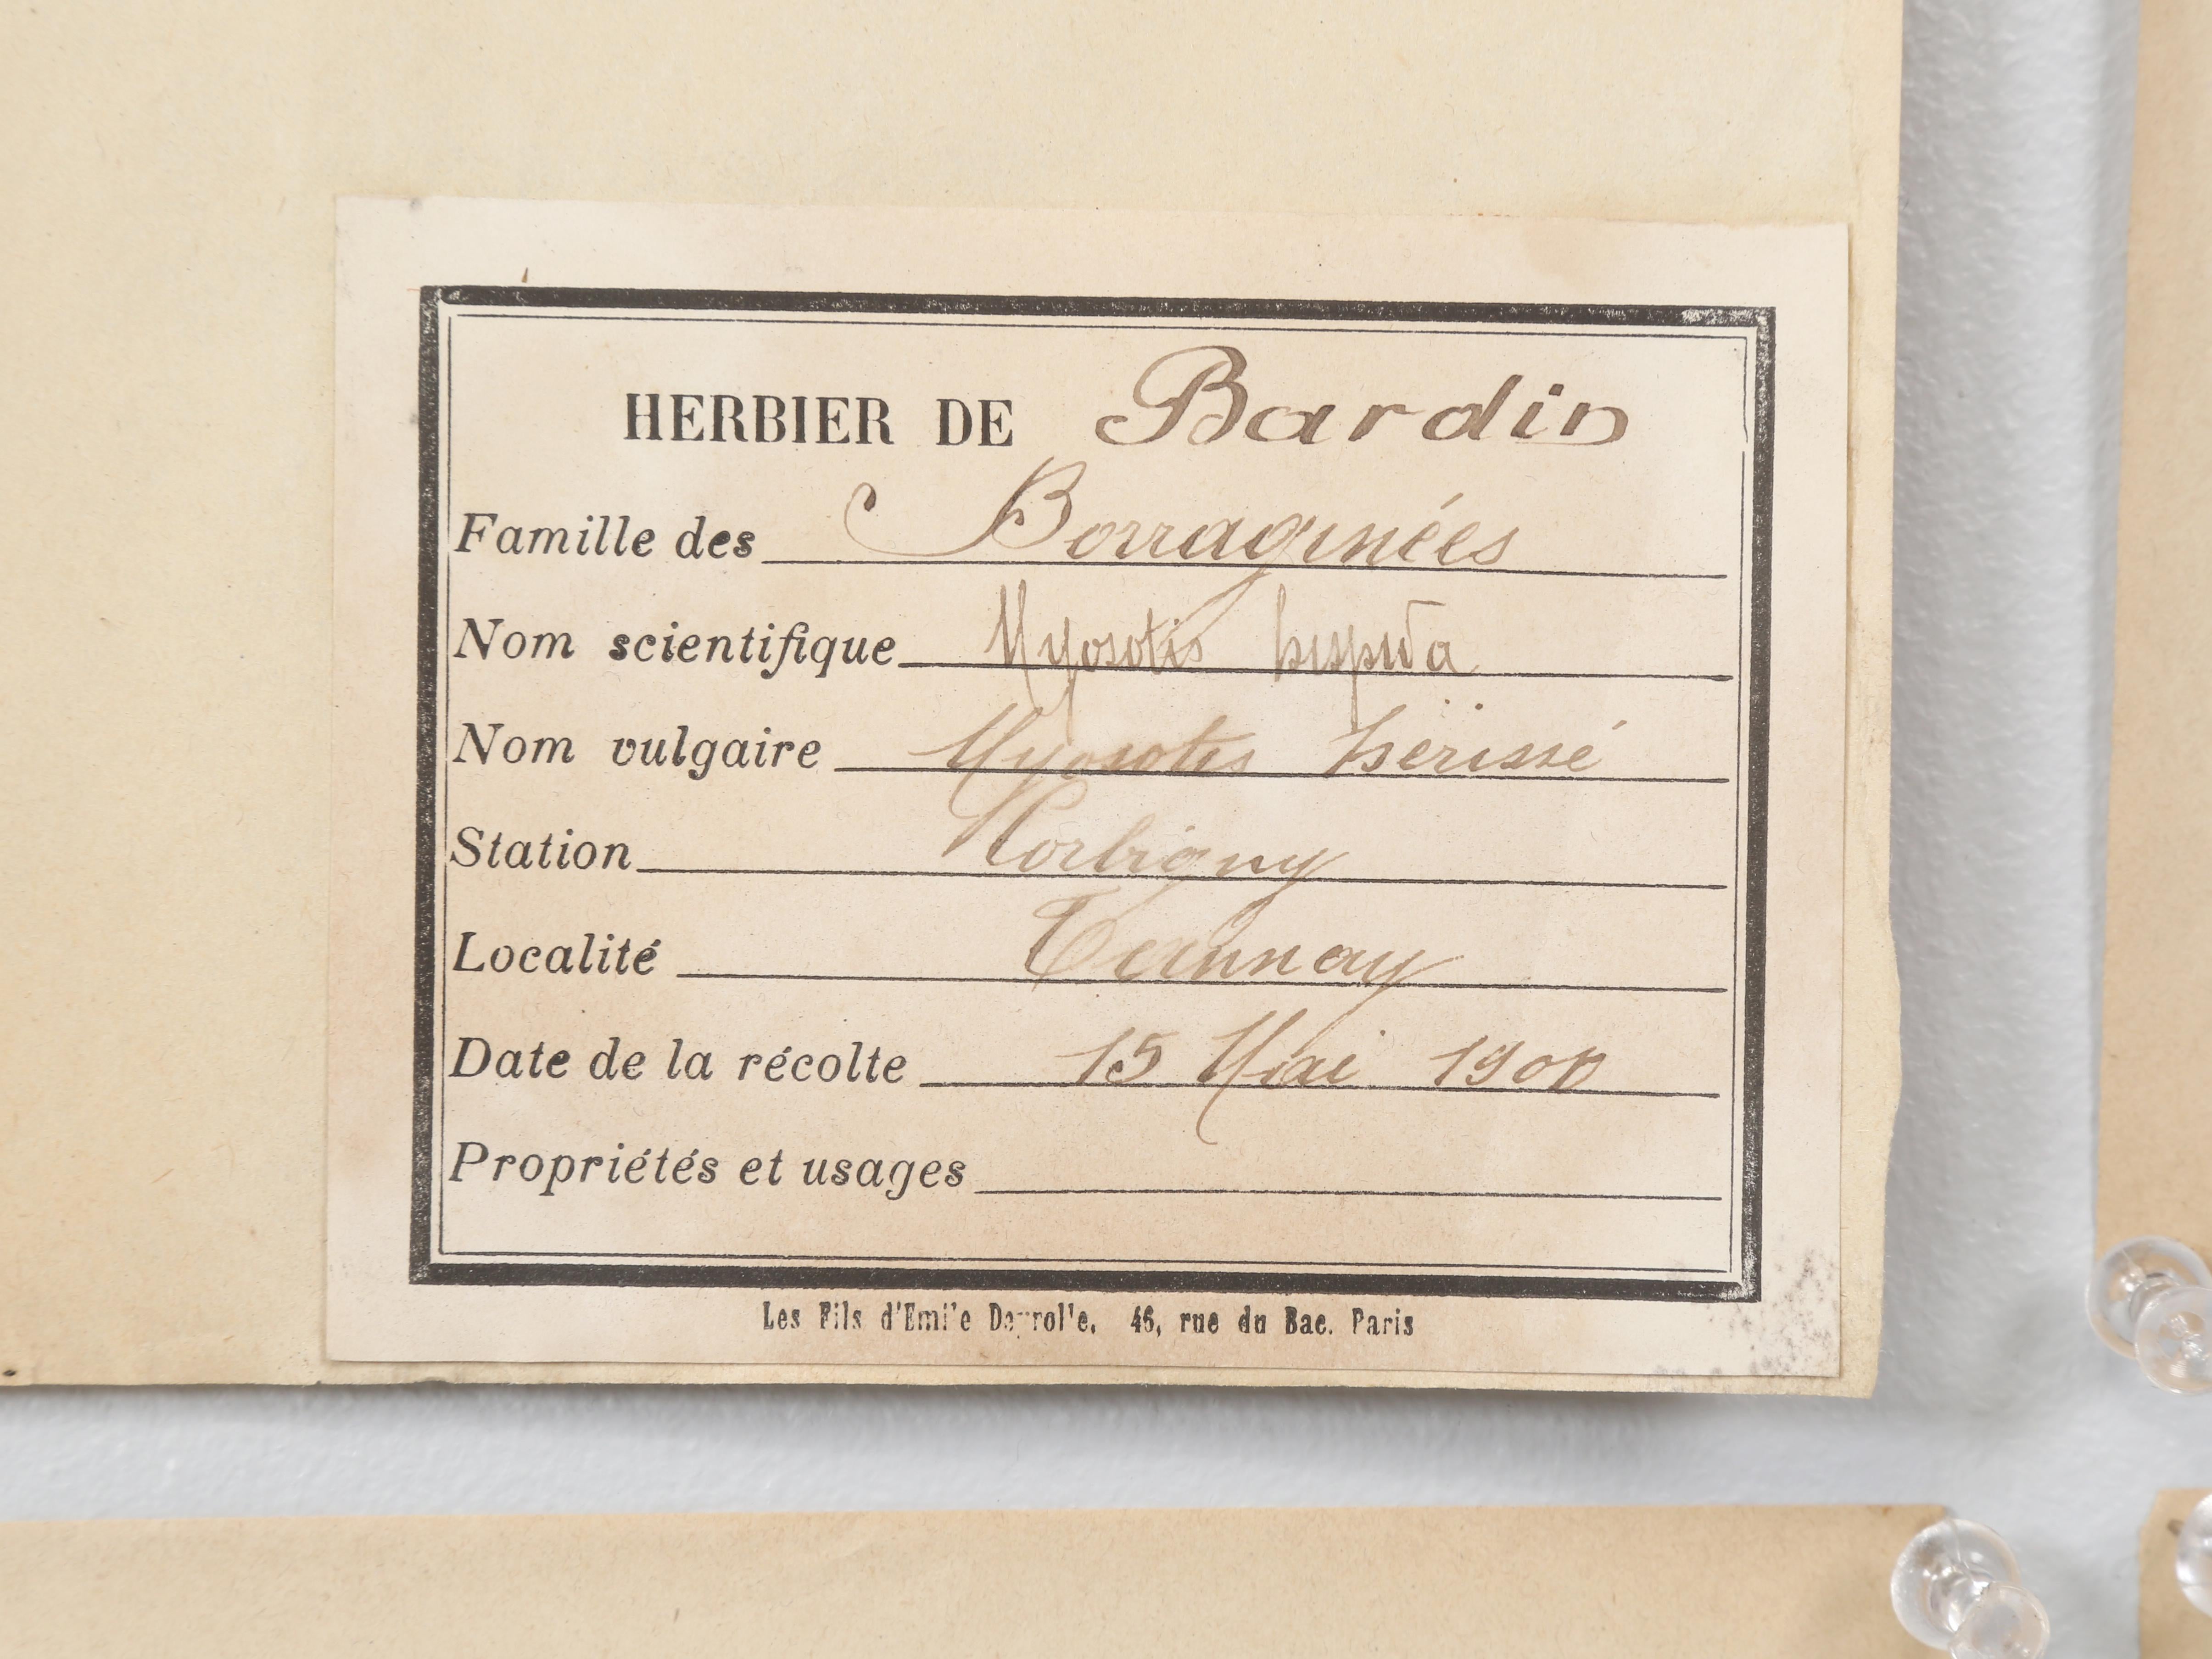 HERBIER DE Bardin
Famille des Borraginées
Nom scientifique Myosotis hispida
Nom vulgaire Myosotis hérissé
Station
Localité Ternay
Date de la récolte 15 Mai 1900
Propriétés et usages
Les Fils d'Emile Deyrolle, 46, rue du Bac. Paris